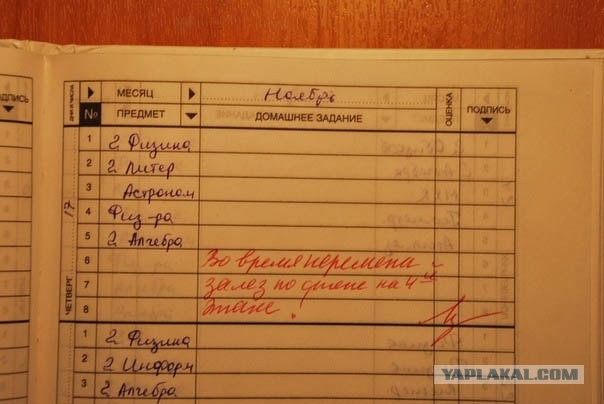 ДНИ И ЧИСЛА МЕСЯЦ Ноябрь ОЦЕНКА ПОДПИСЬ
№ ПРЕДМЕТ ДОМАШНЕЕ ЗАДАНИЕ
ЧЕТВЕРГ 17
1 2 Физика
2 2 Литер
3 Астроном
4 Физ-ра
5 2 Алгебра
6 Во время перемены
7 залез по стене на 4й
8 этаж.
1 2 Физика
2 2 Информ
3 2 Алгебра
YAPLAKAL.COM